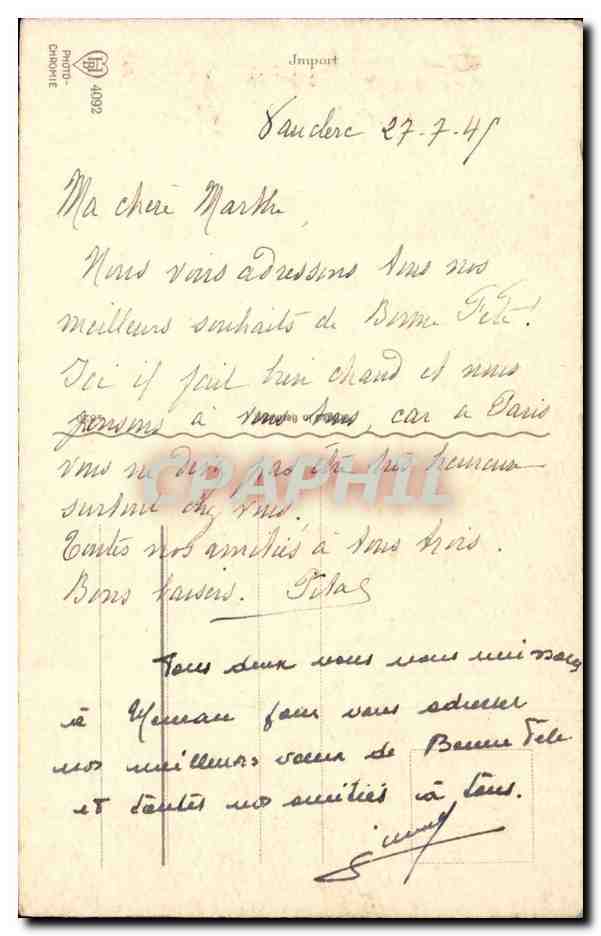 PHOTO-
CHROMIE
4092
Import
Vauclerc 27-7-45
Ma chère Marthe,
Nous vous adressons tous nos
meilleurs souhaits de Bonne Fête!
Ici il fait bien chaud et nous
pensons à vous tous, car à Paris
vous ne devez pas être très heureux
surtout chez vous.
CPAPHIL
Toutes nos amitiés à tous trois.
Bons baisers.
Tous deux nous nous unissons
à Maman pour vous adresser
nos meilleurs vœux de Bonne Fête
et toutes nos amitiés à tous.